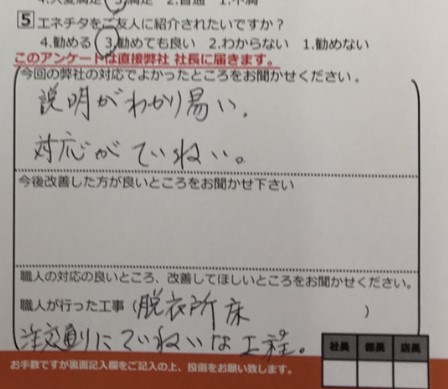 4.大変満足 3.満足 2.普通 1.不満
5 エネチタをご友人に紹介されたいですか？
4.勧める 3.勧めても良い 2.わからない 1.勧めない
このアンケートは直接弊社 社長に届きます。
今回の弊社の対応でよかったところをお聞かせください。
説明がわかり易い．
対応がていねい。
今後改善した方が良いところをお聞かせ下さい
職人の対応の良いところ、改善してほしいところをお聞かせください。
職人が行った工事（脱衣所床）
ていねいな工程。
社長 部長 店長
お手数ですが裏面記入欄をご記入の上、投函をお願い致します。